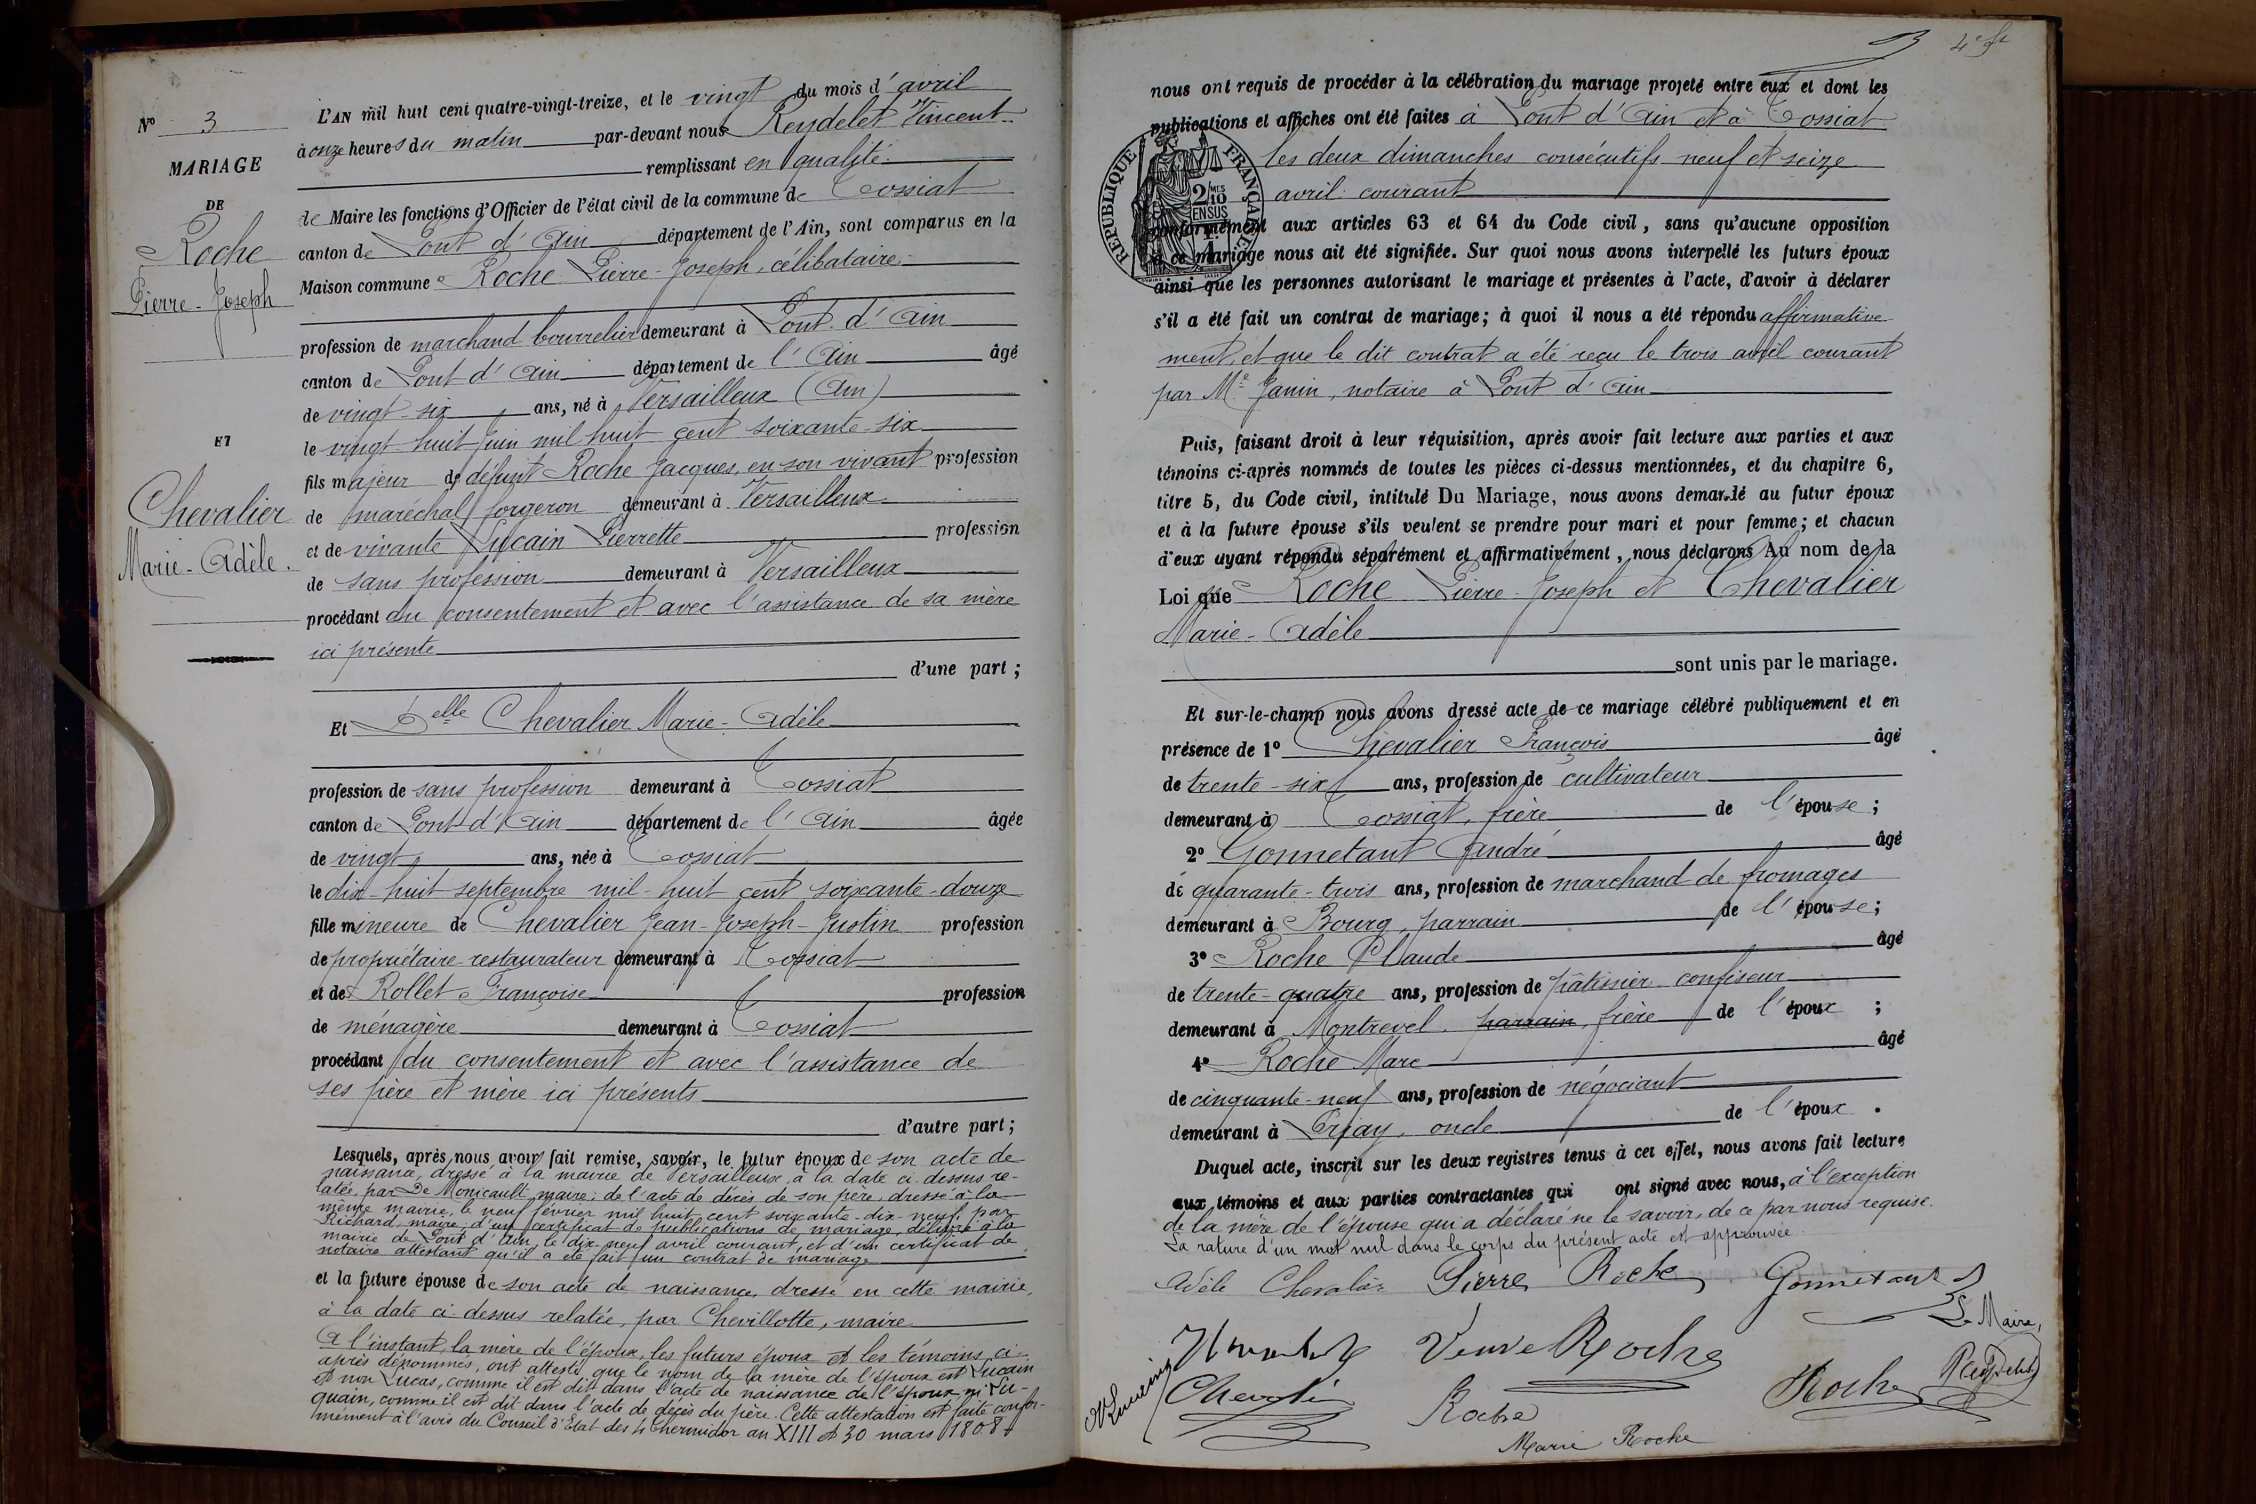 N° 3
MARIAGE
DE
Roche
Pierre-Joseph
ET
Chevalier
Marie-Adèle.
L'AN mil huit cent quatre-vingt-treize, et le vingt du mois d'avril
à onze heures du matin par-devant nous Reydelet Vincent
remplissant en qualité
de Maire les fonctions d'Officier de l'état civil de la commune de Tossiat
canton de Pont d'Ain département de l'Ain, sont comparus en la
Maison commune Roche Pierre-Joseph, célibataire
profession de marchand bourrelier demeurant à Pont d'Ain
canton de Pont d'Ain département de l'Ain âgé
de vingt-six ans, né à Versailleux (Ain)
le vingt-huit juin mil huit cent soixante-six
fils majeur de défunt Roche Jacques, en son vivant profession
de maréchal forgeron demeurant à Versailleux
et de vivante Lucain Pierrette profession
de sans profession demeurant à Versailleux
procédant du consentement et avec l'assistance de sa mère
ici présente
d'une part ;
Et Delle Chevalier Marie-Adèle
profession de sans profession demeurant à Tossiat
canton de Pont d'Ain département de l'Ain âgée
de vingt ans, née à Tossiat
le dix-huit septembre mil-huit cent soixante-douze
fille mineure de Chevalier Jean-Joseph-Justin profession
de propriétaire-restaurateur demeurant à Tossiat
et de Rollet Françoise profession
de ménagère demeurant à Tossiat
procédant du consentement et avec l'assistance de
ses père et mère ici présents
d'autre part ;
Lesquels, après nous avoir fait remise, savoir, le futur époux de son acte de
naissance, dressé à la mairie de Versailleux, à la date ci-dessus re-
latée, par De Monicault, maire; de l'acte de décès de son père, dressé à la
même mairie, le neuf février mil huit cent soixante-dix-neuf, par
Richard, maire; d'un certificat de publications de mariage, délivré à la
mairie de Pont d'Ain, le dix-neuf avril courant, et d'un certificat de
notaire attestant qu'il a été fait un contrat de mariage
et la future épouse de son acte de naissance, dressé en cette mairie,
à la date ci-dessus relatée, par Chevillotte, maire
A l'instant, la mère de l'époux, les futurs époux et les témoins ci-
après dénommés, ont attesté que le nom de la mère de l'époux est Lucain
et non Lucas, comme il est dit dans l'acte de naissance de l'époux, ni Lu-
quain, comme il est dit dans l'acte de décès du père. Cette attestation est faite confor-
mément à l'avis du Conseil d'Etat des 4 thermidor an XIII et 30 mars 1808
3 4e f
nous ont requis de procéder à la célébration du mariage projeté entre eux et dont les
publications et affiches ont été faites à Pont d'Ain et à Tossiat
les deux dimanches consécutifs neuf et seize
avril courant
REPUBLIQUE FRANÇAISE
2/10 MES
EN SUS
conformément aux articles 63 et 64 du Code civil, sans qu'aucune opposition
à ce mariage nous ait été signifiée. Sur quoi nous avons interpellé les futurs époux
ainsi que les personnes autorisant le mariage et présentes à l'acte, d'avoir à déclarer
s'il a été fait un contrat de mariage; à quoi il nous a été répondu affirmative
ment, et que le dit contrat a été reçu le trois avril courant
par Me Janin, notaire à Pont d'Ain
Puis, faisant droit à leur réquisition, après avoir fait lecture aux parties et aux
témoins ci-après nommés de toutes les pièces ci-dessus mentionnées, et du chapitre 6,
titre 5, du Code civil, intitulé Du Mariage, nous avons demandé au futur époux
et à la future épouse s'ils veulent se prendre pour mari et pour femme; et chacun
d'eux ayant répondu séparément et affirmativement, nous déclarons Au nom de la
Loi que Roche Pierre-Joseph et Chevalier
Marie-Adèle
sont unis par le mariage.
Et sur-le-champ nous avons dressé acte de ce mariage célébré publiquement et en
présence de 1° Chevalier François âgé
de trente-six ans, profession de cultivateur
demeurant à Tossiat, frère de l'épouse ;
2° Gonnetant André âgé
de quarante-trois ans, profession de marchand de fromages
demeurant à Bourg, parrain de l'épouse ;
3° Roche Claude âgé
de trente-quatre ans, profession de pâtissier confiseur
demeurant à Montrevel, parrain, frère de l'époux ;
4° Roche Marc âgé
de cinquante-neuf ans, profession de négociant
demeurant à Priay, oncle de l'époux .
Duquel acte, inscrit sur les deux registres tenus à cet effet, nous avons fait lecture
aux témoins et aux parties contractantes qui ont signé avec nous, à l'exception
de la mère de l'épouse qui a déclaré ne le savoir, de ce par nous requise.
La rature d'un mot nul dans le corps du présent acte est approuvée
Adèle Chevalier Pierre Roche Gonnetant
Le Maire,
Veuve Roche
Reydelet
Chevalier
Roche
Roche
Marie Roche